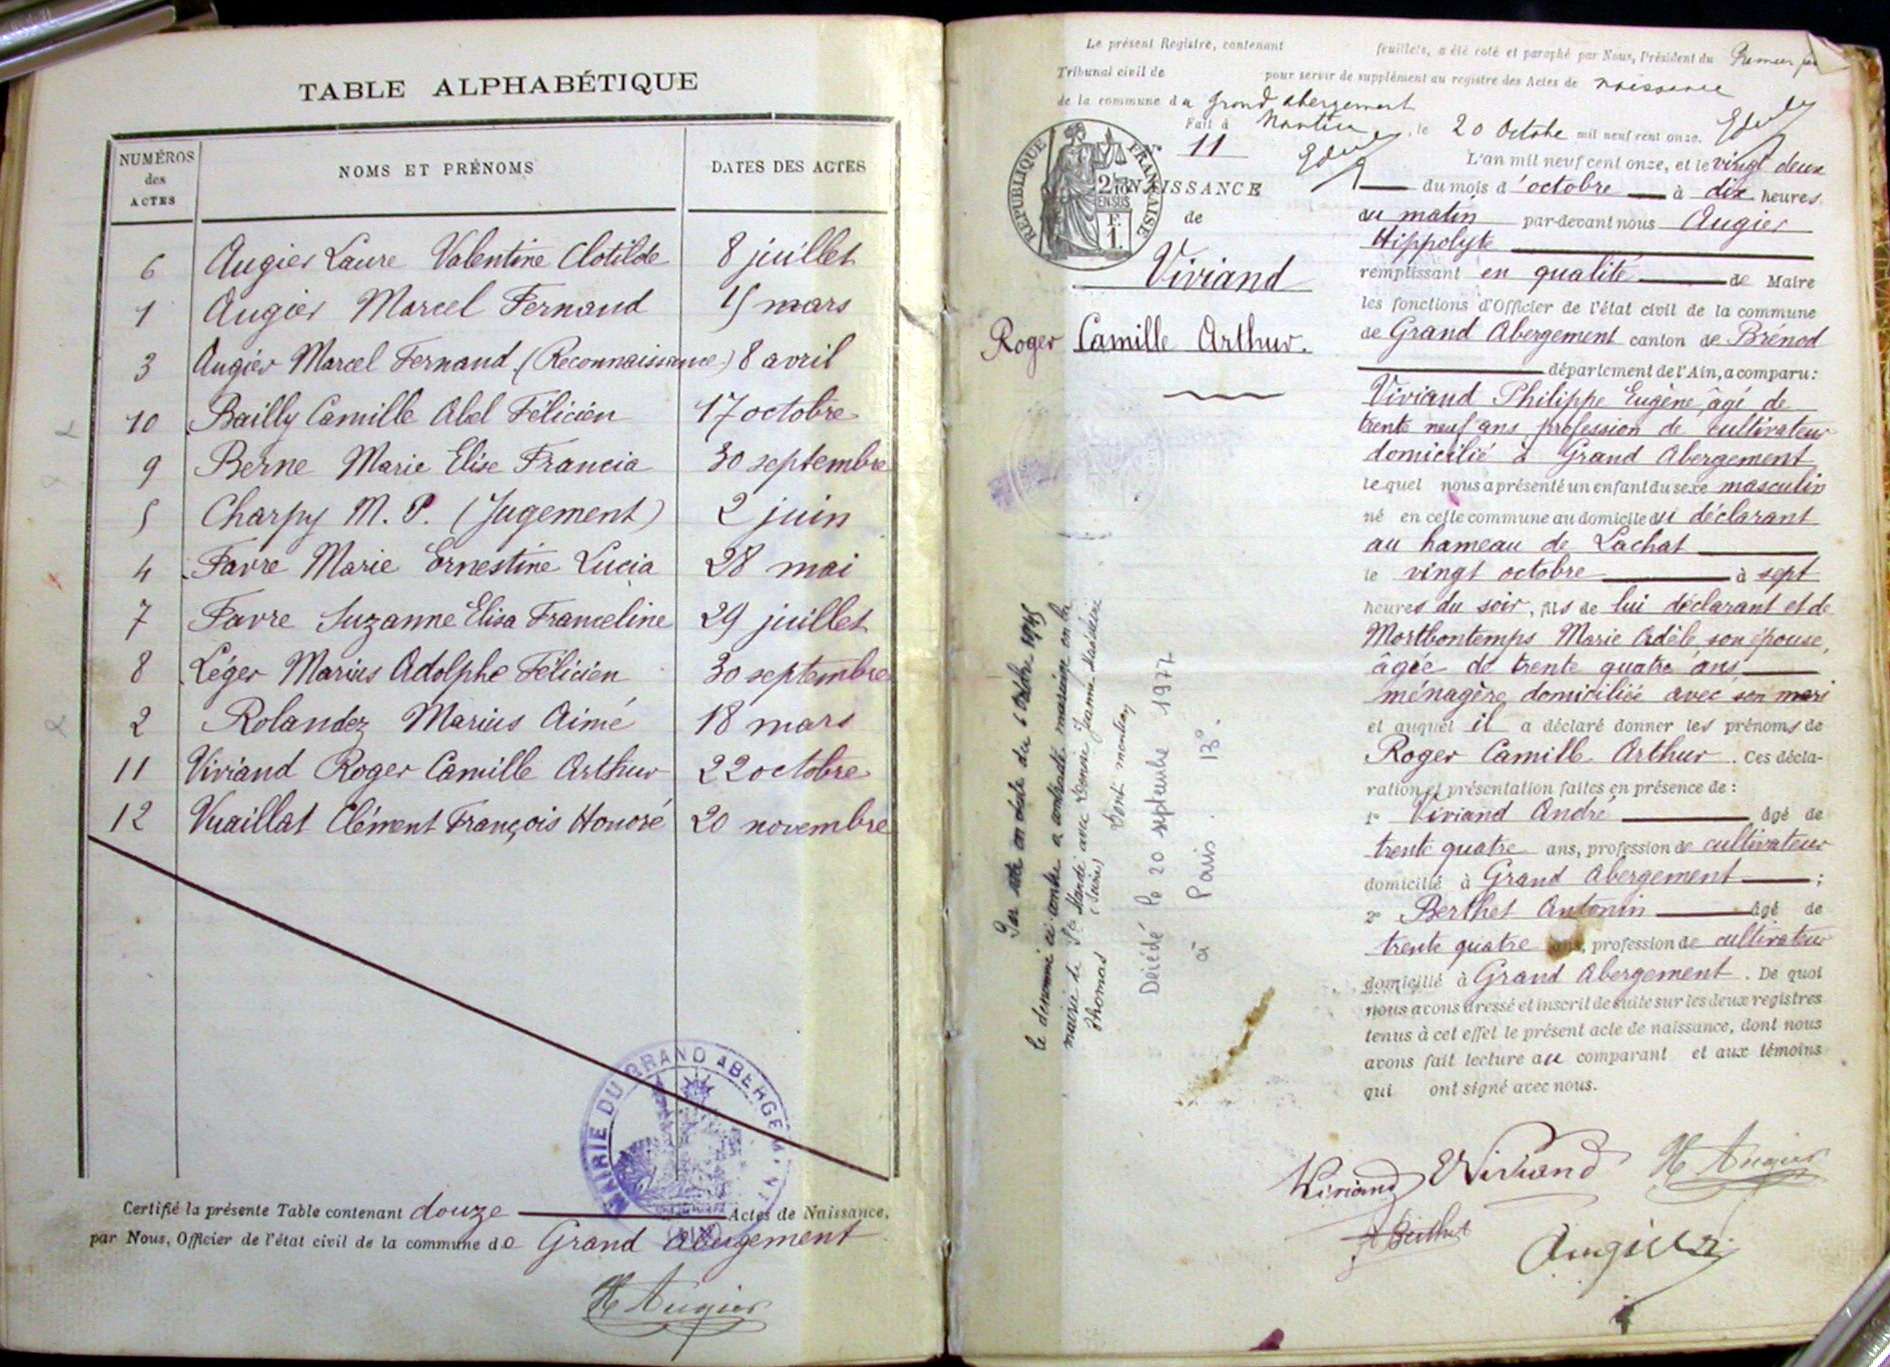 TABLE ALPHABÉTIQUE
NUMÉROS des ACTES NOMS ET PRÉNOMS DATES DES ACTES
6 Augier Laure Valentine Clotilde 8 juillet
1 Augier Marcel Fernand 15 mars
3 Augier Marcel Fernand (Reconnaissance) 8 avril
10 Bailly Camille Abel Félicien 17 octobre
9 Berne Marie Elise Francia 30 septembre
5 Charpy M. P. (Jugement) 2 juin
4 Favre Marie Ernestine Lucia 28 mai
7 Favre Suzanne Elisa Franceline 29 juillet
8 Léger Marius Adolphe Félicien 30 septembre
2 Rolandez Marius Aimé 18 mars
11 Viviand Roger Camille Arthur 22 octobre
12 Vuaillat Clément François Honoré 20 novembre
MAIRIE DU GRAND ABERGEMENT
(AIN)
Certifié la présente Table contenant douze Actes de Naissance,
par Nous, Officier de l'état civil de la commune de Grand Abergement
H Augier
Le présent Registre, contenant feuillets, a été coté et paraphé par Nous, Président du
Tribunal civil de pour servir de supplément au registre des Actes de naissance
de la commune du Grand Abergement
Fait à Nantua, le 20 Octobre mil neuf cent onze.
RÉPUBLIQUE FRANÇAISE
N° 11
NAISSANCE
de
Viviand
Roger Camille Arthur.
L'an mil neuf cent onze, et le vingt deux
du mois d'octobre à dix heures
du matin par-devant nous Augier
Hippolyte
remplissant en qualité de Maire
les fonctions d'Officier de l'état civil de la commune
de Grand Abergement canton de Brénod
département de l'Ain, a comparu :
Viviand Philippe Eugène âgé de
trente neuf ans profession de cultivateur
domicilié à Grand Abergement
lequel nous a présenté un enfant du sexe masculin
né en cette commune au domicile du déclarant
au hameau de Lachat
le vingt octobre à sept
heures du soir, fils de lui déclarant et de
Mortbontemps Marie Adèle son épouse,
âgée de trente quatre ans,
ménagère domiciliée avec son mari
et auquel il a déclaré donner les prénoms de
Roger Camille Arthur. Ces décla-
ration et présentation faites en présence de :
1° Viviand André âgé de
trente quatre ans, profession de cultivateur
domicilié à Grand Abergement ;
2° Berthet Antonin âgé de
trente quatre ans, profession de cultivateur
domicilié à Grand Abergement. De quoi
nous avons dressé et inscrit de suite sur les deux registres
tenus à cet effet le présent acte de naissance, dont nous
avons fait lecture au comparant et aux témoins
qui ont signé avec nous.
Viviand EViviand H Augier
A Berthet Augier
Par acte en date du 6 Octobre 1945
le dénommé ci contre a contracté mariage en la
mairie de St Mandé avec Jeanne
(Seine)
Thomas Dont mention
Décédé le 20 septembre 1977
à Paris 13°.